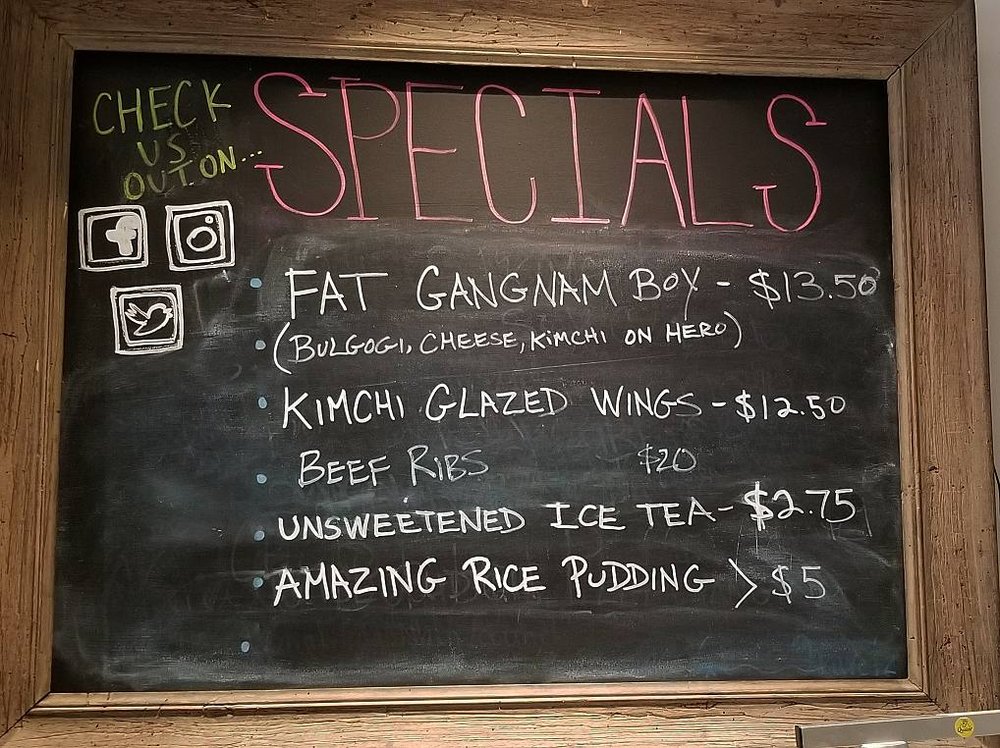 CHECK
US
OUT ON...
SPECIALS
FAT GANGNAM BOY - $13.50
(BULGOGI, CHEESE, KIMCHI ON HERO)
KIMCHI GLAZED WINGS - $12.50
BEEF RIBS $20
UNSWEETENED ICE TEA - $2.75
AMAZING RICE PUDDING > $5